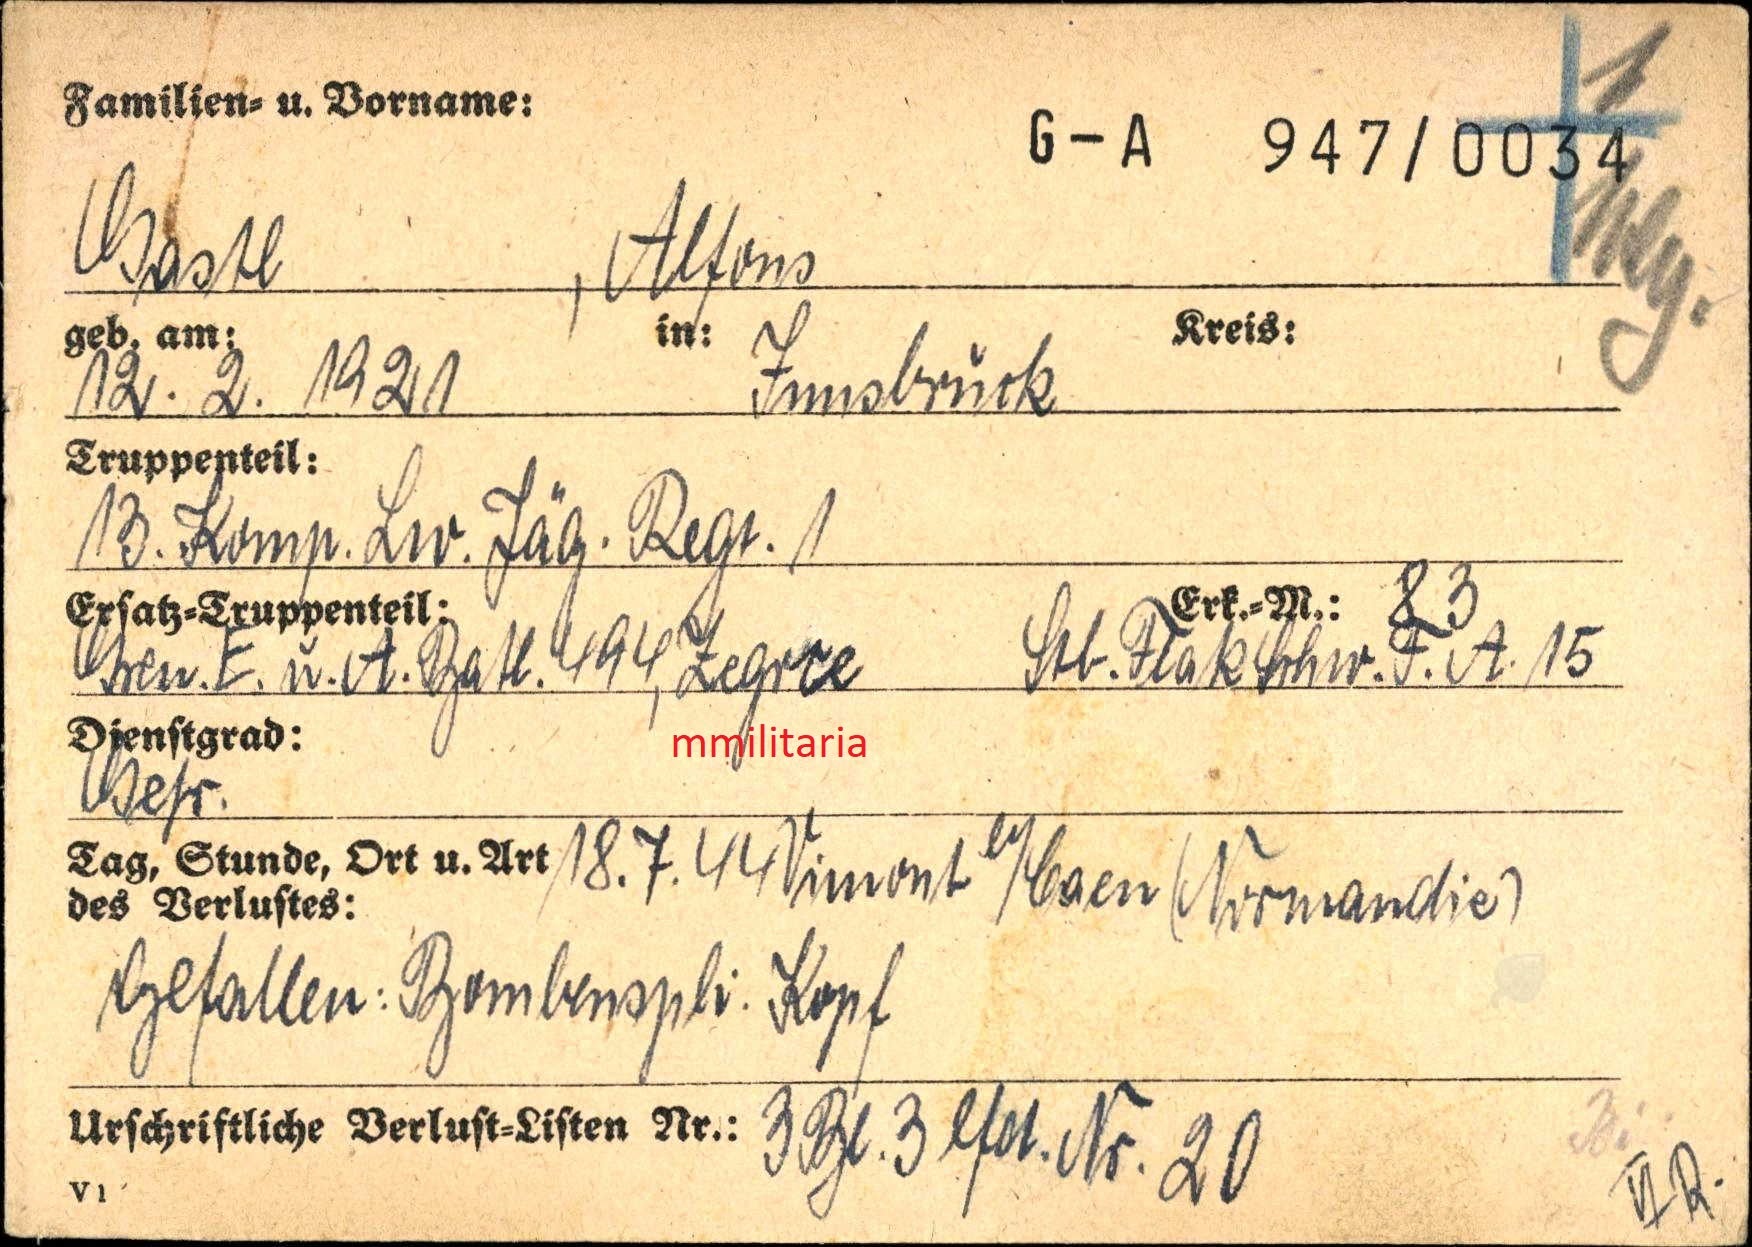 Familien- u. Vorname:
G-A 947/0034
Gastl, Alfons
geb. am: in: Kreis:
12. 2. 1921 Innsbruck
Truppenteil:
13. Komp. Lw. Jäg. Regt. 1
Ersatz-Truppenteil: Erk.-M.: 83
Gren. E. u. A. Batl. 494, Zegrze Stb. Flak Schw. F. A. 15
Dienstgrad:
mmilitaria
Gefr.
Tag, Stunde, Ort u. Art 18.7.44 Vimont b/Caen (Normandie)
des Verlustes:
Gefallen: Bombenspli. Kopf
Urschriftliche Verlust-Listen Nr.: 3 Bl. 3 lfd. Nr. 20
V 1
VI R.